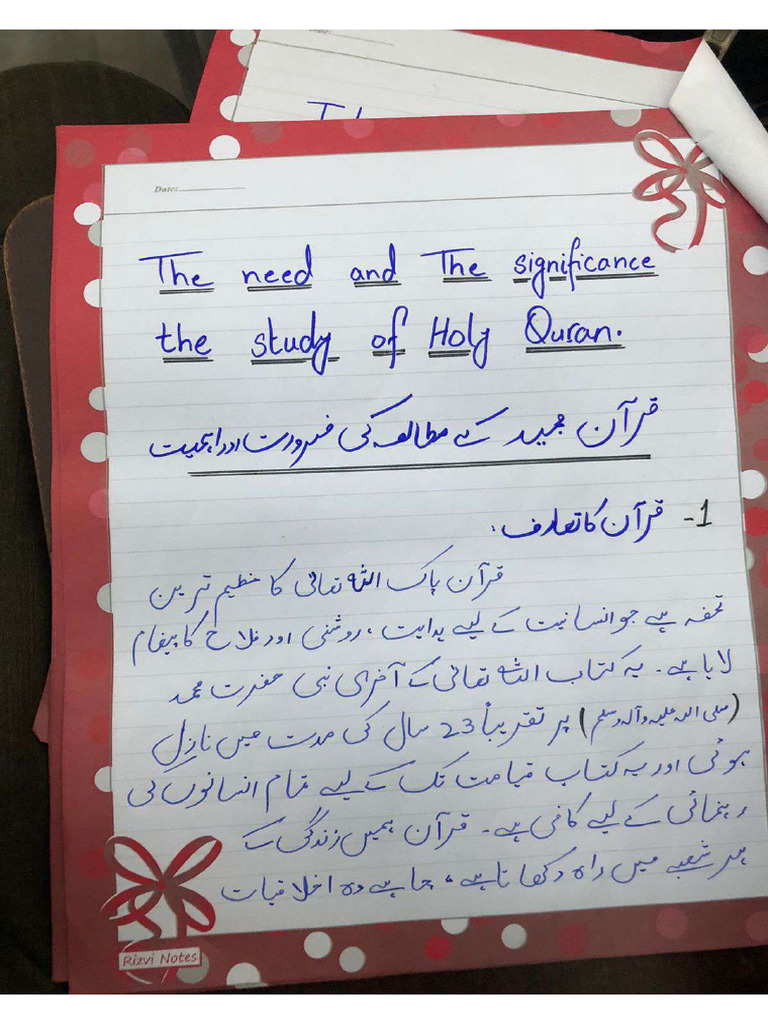 Date:
The need and The significance
the study of Holy Quran.
قرآن مجید کے مطالعہ کی ضرورت اور اہمیت
1- قرآن کا تعارف:
قرآن پاک اللہ تعالیٰ کا عظیم ترین
تحفہ ہے جو انسانیت کے لیے ہدایت، روشنی اور فلاح کا پیغام
لایا ہے۔ یہ کتاب اللہ تعالیٰ کے آخری نبی حضرت محمد
(صلی اللہ علیہ وآلہ وسلم) پر تقریباً 23 سال کی مدت میں نازل
ہوئی اور یہ کتاب قیامت تک کے لیے تمام انسانوں کی
رہنمائی کے لیے کافی ہے۔ قرآن ہمیں زندگی کے
ہر شعبے میں راہ دکھاتا ہے، چاہے وہ اخلاقیات
Rizvi Notes